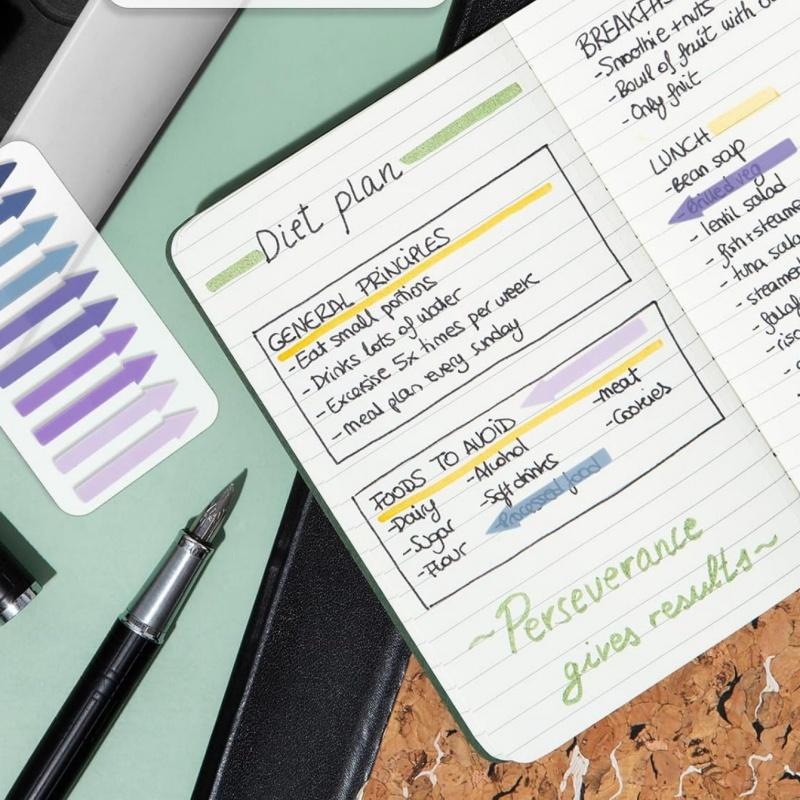 Diet plan
GENERAL PRINCIPLES
-Eat small portions
-Drinks lots of water
-Excersise 5x times per week
-meal plan every sunday
FOODS TO AVOID
-Dairy
-Sugar
-Flour
-Alcohol
-Soft drinks
-Processed food
-meat
-Cookies
~Perseverance
gives results~
-Smoothie+nuts
-Bowl of fruit with
-Only fruit
LUNCH
-Bean soup
-Grilled veg
-lentil salad
-fish+steame
-tuna sala
-steame